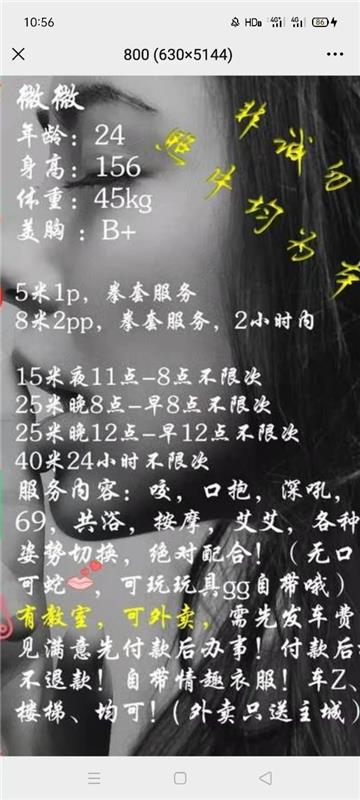 10:56
HD
4G
4G
86
800 (630×5144)
微微
年龄：24
身高：156
体重：45kg
美胸：B+
非诚勿
照片均为本
5米1p，拳套服务
8米2pp，拳套服务，2小时内
15米夜11点-8点不限次
25米晚8点-早8点不限次
25米晚12点-早12点不限次
40米24小时不限次
服务内容：咬，口抱，深吼，
69，共浴，按摩，艾艾，各种
姿势切换，绝对配合！（无口
可蛇，可玩玩具gg自带哦）
有教室，可外卖，需先发车费
见满意先付款后办事！付款后
不退款！自带情趣衣服！车Z、
楼梯、均可！（外卖只送主城）